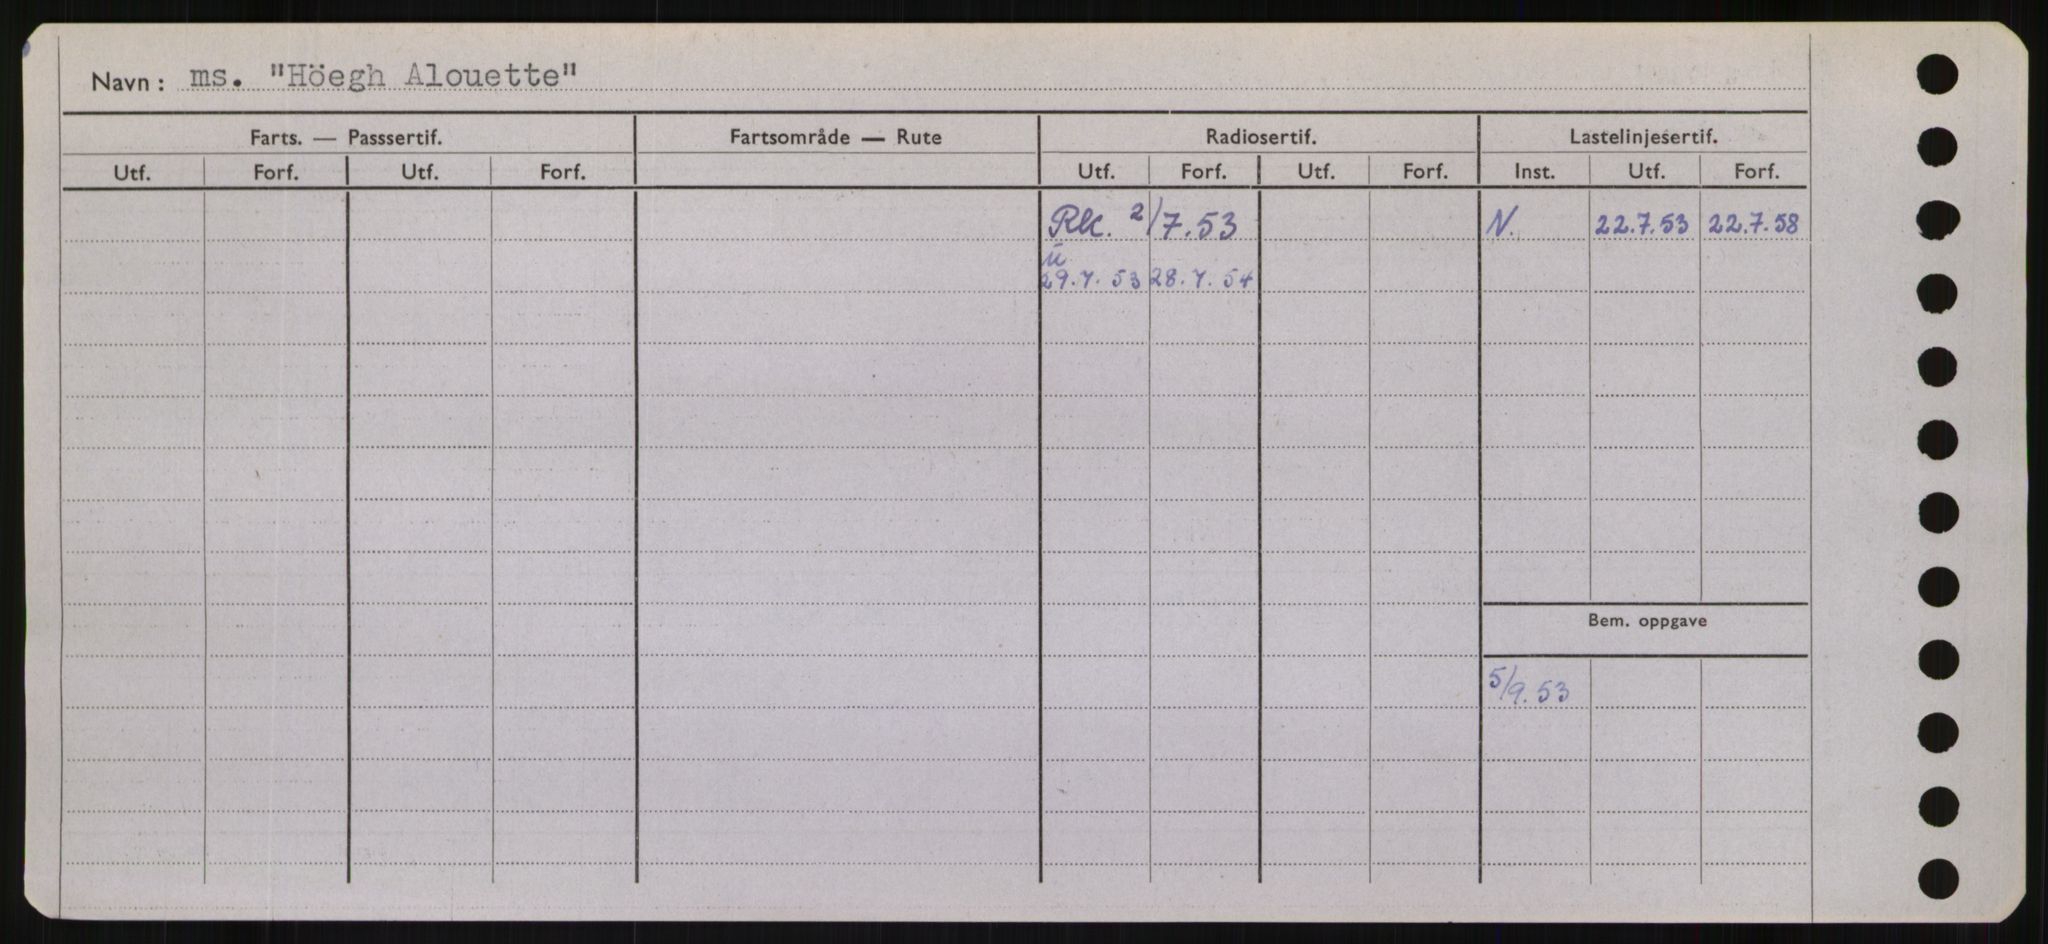 Navn: ms. "Höegh Alouette"
Farts. — Passsertif. Fartsområde — Rute Radiosertif. Lastelinjesertif.
Utf. Forf. Utf. Forf. Utf. Forf. Utf. Forf. Inst. Utf. Forf.
Rk. 2/7.53 N. 22.7.53 22.7.58
u
29.7.53 28.7.54
Bem. oppgave
5/9.53